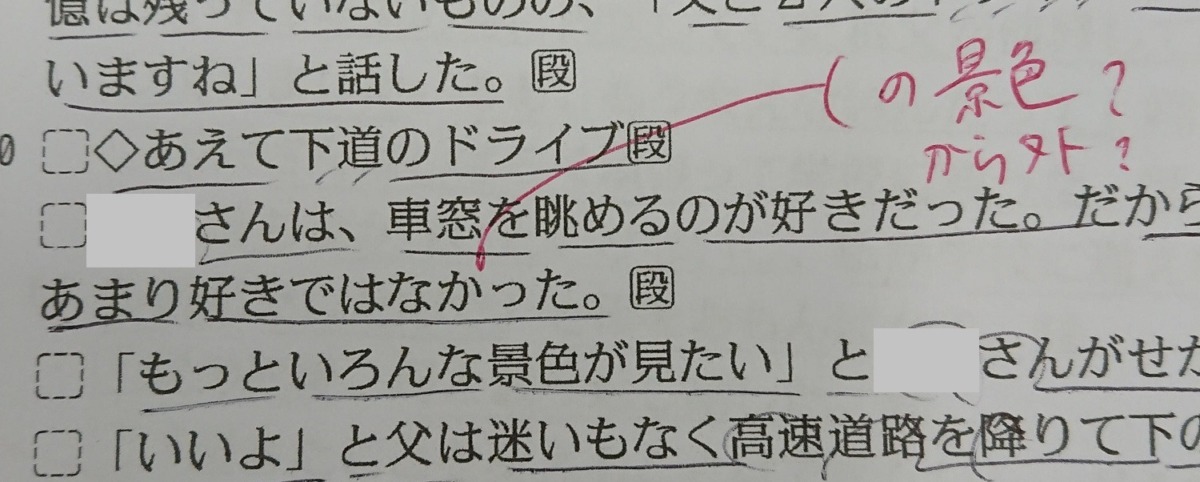 憶は残っていないものの、「父と2人の
いますね」と話した。段
の景色?
から外?
0 ◇あえて下道のドライブ段
さんは、車窓を眺めるのが好きだった。だから
あまり好きではなかった。段
「もっといろんな景色が見たい」と さんがせが
「いいよ」と父は迷いもなく高速道路を降りて下の